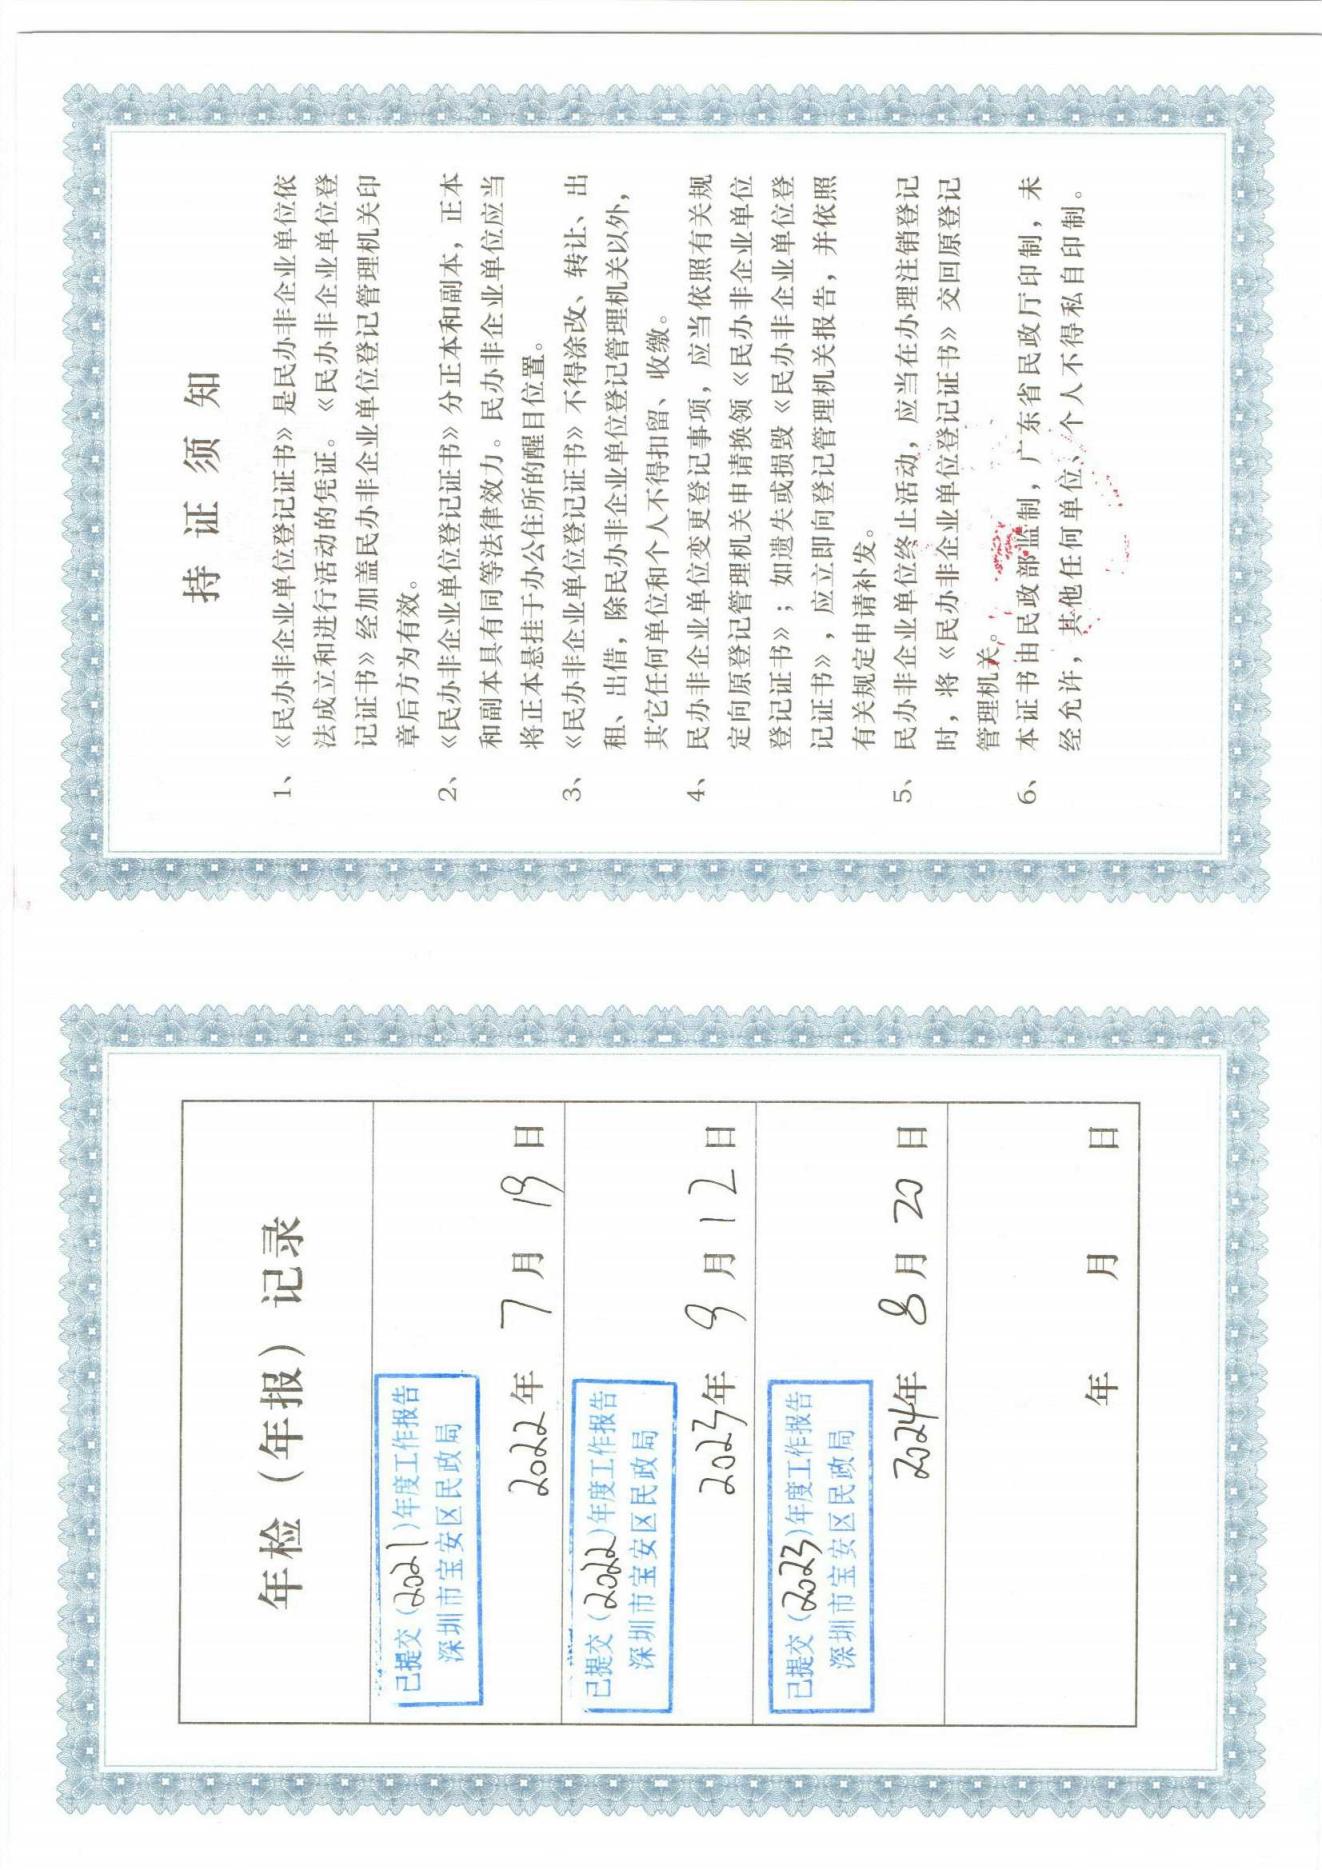 年检（年报）记录
已提交（2021）年度工作报告
深圳市宝安区民政局
2022年 7月 19日
已提交（2022）年度工作报告
深圳市宝安区民政局
2023年 9月 12日
已提交（2023）年度工作报告
深圳市宝安区民政局
2024年 8月 20日
年 月 日
持证须知
1、《民办非企业单位登记证书》是民办非企业单位依
法成立和进行活动的凭证。《民办非企业单位登
记证书》经加盖民办非企业单位登记管理机关印
章后方为有效。
2、《民办非企业单位登记证书》分正本和副本，正本
和副本具有同等法律效力。民办非企业单位应当
将正本悬挂于办公住所的醒目位置。
3、《民办非企业单位登记证书》不得涂改、转让、出
租、出借，除民办非企业单位登记管理机关以外，
其它任何单位和个人不得扣留、收缴。
4、民办非企业单位变更登记事项，应当依照有关规
定向原登记管理机关申请换领《民办非企业单位
登记证书》；如遗失或损毁《民办非企业单位登
记证书》，应立即向登记管理机关报告，并依照
有关规定申请补发。
5、民办非企业单位终止活动，应当在办理注销登记
时，将《民办非企业单位登记证书》交回原登记
管理机关。
6、本证书由民政部监制，广东省民政厅印制，未
经允许，其他任何单位、个人不得私自印制。